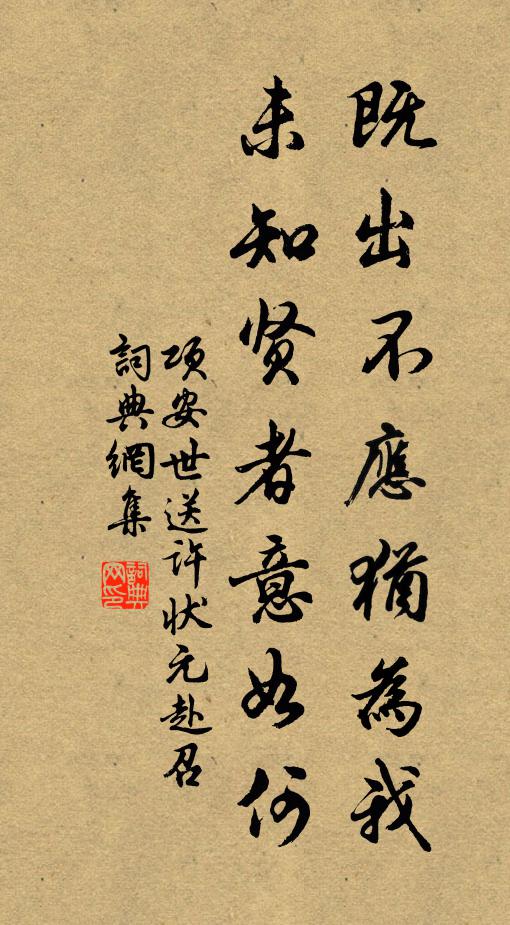 既出不應猶為我
未知贤者意如何
項安世送許状元赴召
詞典網集
詞典
网印